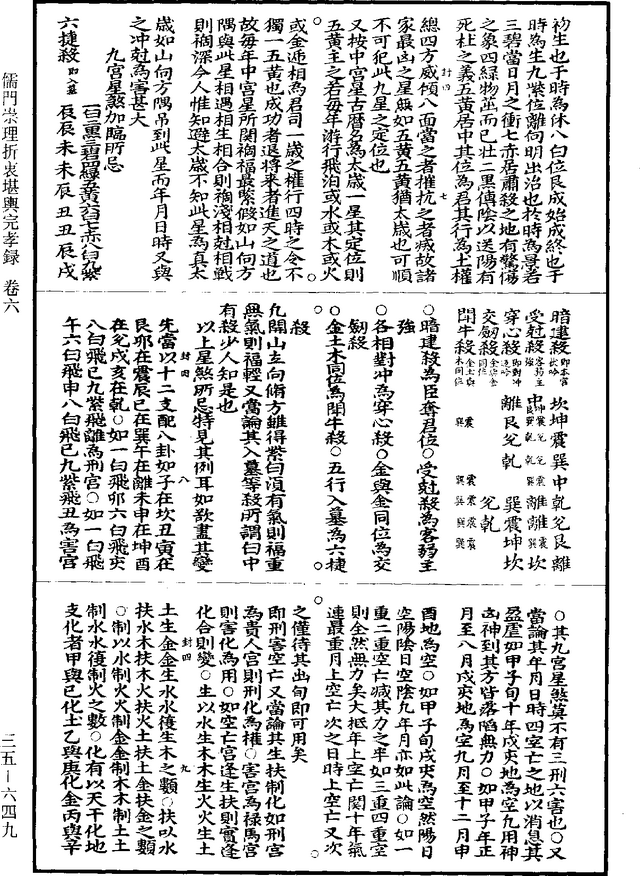 初生也于時為休八白位艮成始成終也于
時為生九紫位離向明出治也於時為景若
三碧當日月之衝七赤居肅殺之地有驚傷
之象四綠物茁而已壯二黑傳陰以送陽有
死杜之義五黃居中其位為君其行為土權
總四方威傾八面當之者摧抗之者滅故諸
家最凶之星無如五黃五黃猶太歲也可順
不可犯此九星之定位也
又按中宮星古曆名為太歲一星其定位則
五黃主之若每年游行飛泊或水或木或火
或金遞相為君司一歲之權行四時之令不
獨一五黃也成功者退將來者進天之道也
故每年中宮星所關禍福最緊假如山向方
隅與此星相遇相生相合則禍淺相尅相戰
則禍深今人惟知避太歲不知此星為真太
歲如山向方隅吊到此星而年月日時又與
之冲尅為害甚大
九宮星煞加臨所忌
一白二黑三碧四綠五黃六白七赤八白九紫
六捷殺 即入墓 辰辰未未辰丑丑辰戌
暗建殺 即本宮伏吟 坎坤震巽中乾兌艮離
受尅殺 客弱主強
穿心殺 即對冲返吟 離艮兌乾 巽震坤坎
交劍殺 金與金同位 兌乾
鬪牛殺 金土與木同位
○暗建殺為臣奪君位○受尅殺為客弱主
強
○各相對冲為穿心殺○金與金同位為交
劍殺
○金土木同位為鬪牛殺○五行入墓為六捷
殺
九關山立向脩方雖得紫白須有氣則福重
無氣則福輕又當論其入墓等殺所謂白中
有殺少人知是也
以上星煞所忌特見其例耳如欲盡其變
先當以十二支配八卦如子在坎丑寅在
艮卯在震辰巳在巽午在離未申在坤酉
在兌戌亥在乾○如一白飛卯六白飛亥
八白飛巳九紫飛離為刑宮○如一白飛
午六白飛申八白飛巳九紫飛丑為害宮
○其九宮星煞莫不有三刑六害也○又
當論其年月日時四空亡之地以消息其
盈虛如甲子旬十年戌亥地為空九用神
凶神到其方皆落陷無力○如甲子年正
月至八月戌亥地為空九月至十二月申
酉地為空○如甲子旬戌亥為空然陽日
空陽陰日空陰九年月亦如此論○如一
重二重空亡減其力之半如三重四重空
則全然無力矣大抵年上空亡関十年氣
運最重月上空亡次之日時上空亡又次
之僅待其出旬即可用矣
即刑害空亡又當論其生扶制化如刑宮
為貴人宮則刑化為權○害宮為祿馬宮
則害化為用○如空亡宮逢生扶則實逢
化合則變○生以水生木木生火火生土
土生金金生水水復生木之類○扶以水
扶水木扶木火扶火土扶土金扶金之類
○制以水制火火制金金制木木制土土
制水水復制火之數○化有以天干化地
支化者甲與己化土乙與庚化金丙與辛
儒門崇理折衷堪輿完孝錄 卷六
三五—六四九
封四 七
封四 八
封四 九